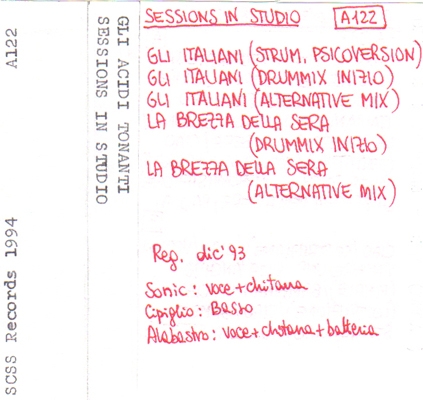 A122
SCSS Records 1994
GLI ACIDI TONANTI
SESSIONS IN STUDIO
SESSIONS IN STUDIO A122
GLI ITALIANI (STRUM. PSICOVERSION)
GLI ITALIANI (DRUMMIX INIZIO)
GLI ITALIANI (ALTERNATIVE MIX)
LA BREZZA DELLA SERA
(DRUMMIX INIZIO)
LA BREZZA DELLA SERA
(ALTERNATIVE MIX)
Reg. dic '93
Sonic: voce+chitarra
Cipiglio: Basso
Alabastro: voce+chitarra+batteria